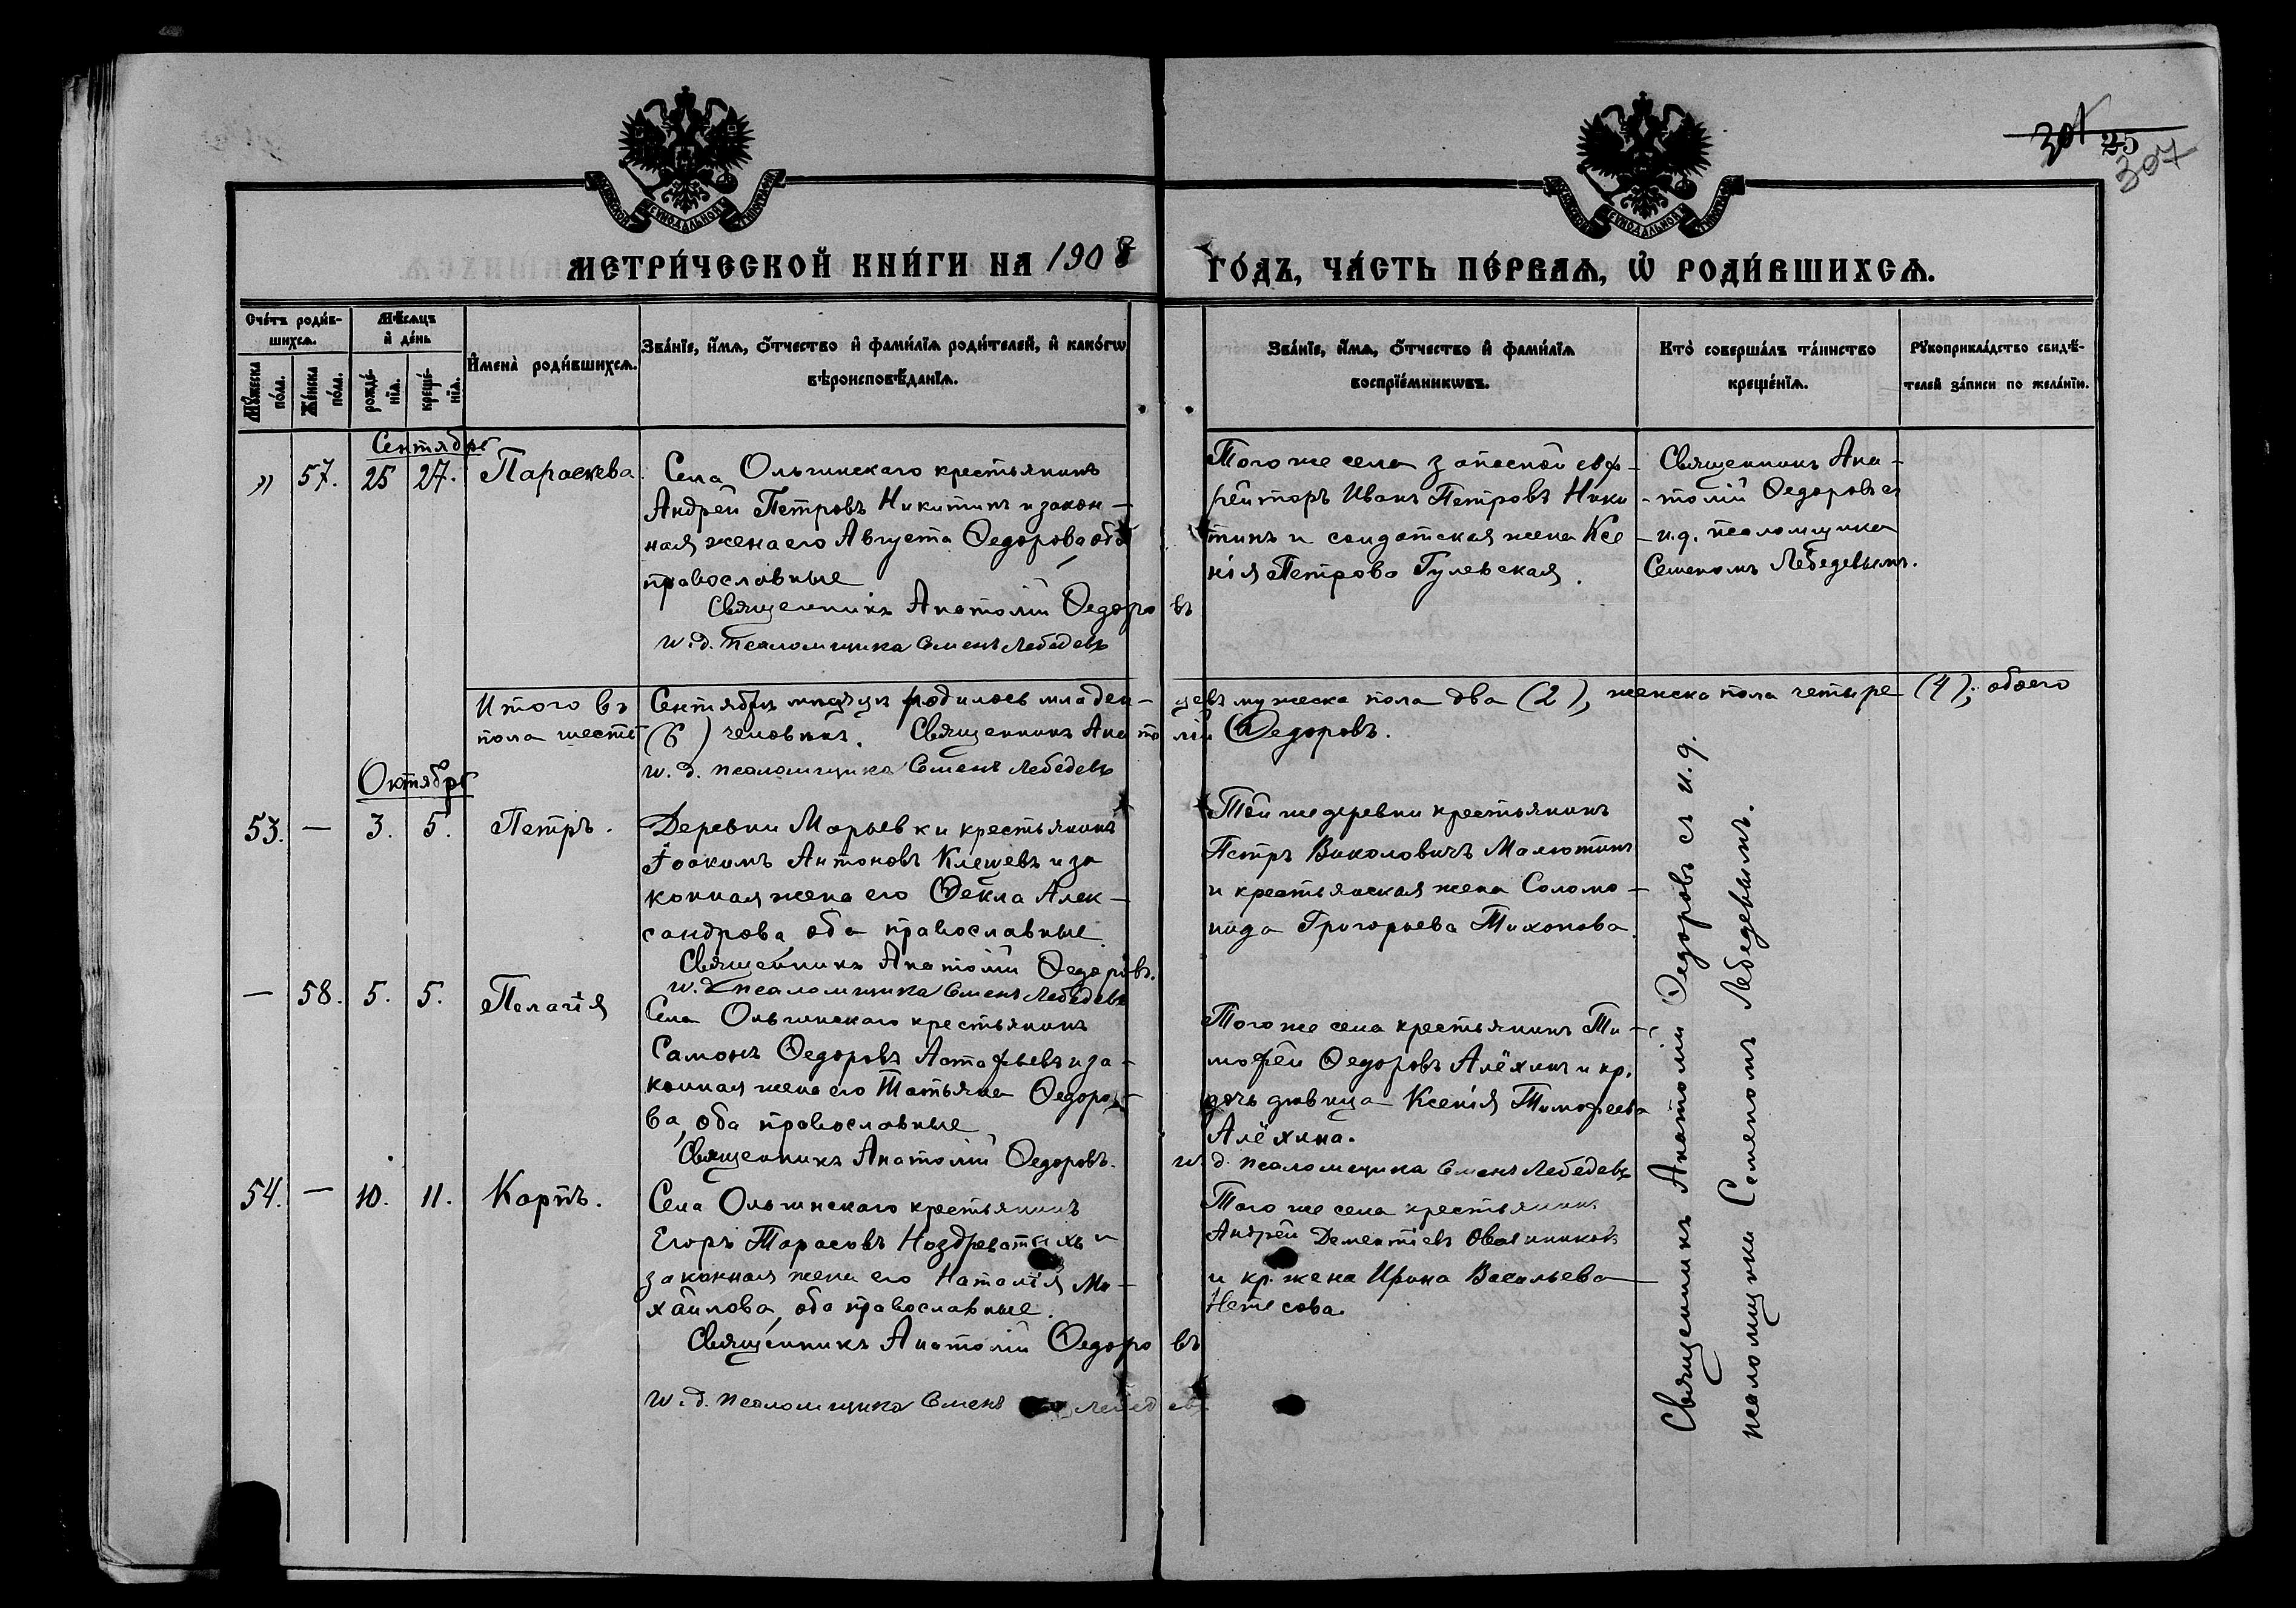 301 25
307
МОСКОВСКОЙ СѴНОДАЛЬНОЙ ТИПОГРАФІИ
МОСКОВСКОЙ СѴНОДАЛЬНОЙ ТИПОГРАФІИ
МЕТРИ́ЧЕСКОЙ КНИ́ГИ НА 1908 ГО́ДЪ, ЧА́СТЬ ПЕ́РВАѦ, Ѡ҆ РОДИ́ВШИХСѦ.
Сче́тъ роди́в-
шихсѧ.
Мꙋ́жеска
по́ла.
Же́нска
по́ла.
Мѣ́сѧцъ
и҆ де́нь
рожде́-
нїѧ.
креще́-
нїѧ.
И҆мена̀ роди́вшихсѧ.
Зва́нїе, и҆́мѧ, ѻ҆́тчество и҆ фами́лїѧ роди́телей, и҆ како́гѡ
вѣроисповѣ́данїѧ.
Зва́нїе, и҆́мѧ, ѻ҆́тчество и҆ фами́лїѧ
воспрїе́мникѡвъ.
Кто̀ соверша́лъ та́инство
креще́нїѧ.
Рꙋкоприкла́дство свидѣ́-
телей за́писи по жела́нїю.
Сентябрь
„ 57. 25 27. Параскева
Села Ольгинскаго крестьянинъ
Андрей Петровъ Никитинъ и закон-
ная жена его Августа Ѳедорова, оба
православные
Священникъ Анатолій Ѳедоровъ
и. д. псаломщика Семенъ Лебедевъ
Того же села запасной еф-
рейторъ Иванъ Петровъ Ники
тинъ и солдатская жена Ксе
нія Петрова Гулевская.
Священникъ Ана-
-толій Ѳедоровъ съ
-и.д. псаломщика
Семеномъ Лебедевымъ.
Итого въ Сентябрѣ мѣсяцѣ родилось младен-цевъ мужеска пола два (2), женска пола четыре (4); обоего
пола шесть (6) человѣкъ. Священникъ Анатолій Ѳедоровъ.
и. д. псаломщика Семенъ Лебедевъ
Октябрь
53. — 3. 5. Петръ.
Деревни Марьевки крестьянинъ
Іоакимъ Антоновъ Клешевъ и за
конная жена его Ѳекла Алек-
сандрова, оба православные.
Священникъ Анатолій Ѳедоровъ.
и. д. псаломщика Семенъ Лебедевъ
Той же деревни крестьянинъ
Петръ Виколовичъ Малютинъ
и крестьянская жена Соломо-
нида Григорьева Тихонова.
— 58. 5. 5. Пелагія
Села Ольгинскаго крестьянинъ
Самонъ Ѳедоровъ Астафьевъ и за-
конная жена его Татьяна Ѳедоро-
ва, оба православные
Священникъ Анатолій Ѳедоровъ.
Того же села крестьянинъ Ти-
мофей Ѳедоровъ Алёхинъ и кр.
дочь дѣвица Ксенія Тимофеева
Алёхина.
и. д. псаломщика Семенъ Лебедевъ
54. — 10. 11. Карпъ.
Села Ольгинскаго крестьянинъ
Егоръ Тарасовъ Ноздреватыхъ и
законная жена его Наталія Ми-
хайлова, оба православные.
Священникъ Анатолій Ѳедоровъ
и. д. псаломщика Семенъ Лебедевъ
Того же села крестьянинъ
Андрей Дементіевъ Овчинниковъ
и кр. жена Ирина Васильева
Нетесова.
Священникъ Анатолій Ѳедоровъ съ и.д.
псаломщика Семеномъ Лебедевымъ.